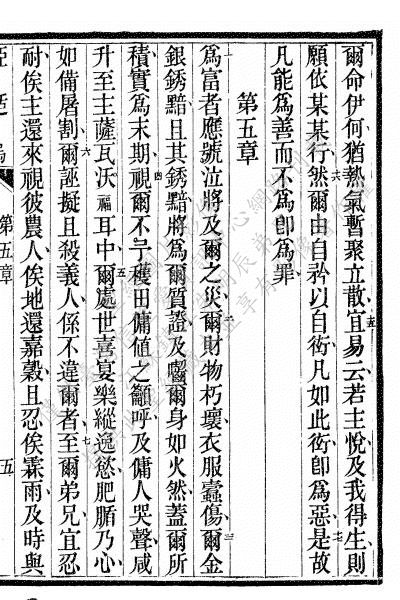 爾命伊何猶熱氣暫聚立散宜易云若主悅及我得生則
願依某某行然爾由自矜以自衒凡如此衒卽爲惡是故
凡能爲善而不爲卽爲罪
第五章
爲富者應號泣將及爾之災爾財物朽壞衣服蠧傷爾金
銀銹黯且其銹黯將爲爾質證及囓爾身如火然蓋爾所
積實爲末期視爾不予穫田傭値之籲呼及傭人哭聲咸
升至主薩瓦沃福耳中爾處世喜宴樂縱逸慾肥腯乃心
如備屠割爾誣擬且殺義人係不違爾者至爾弟兄宜忍
耐俟主還來視彼農人俟地還嘉穀且忍俟霖雨及時與
第五章
五